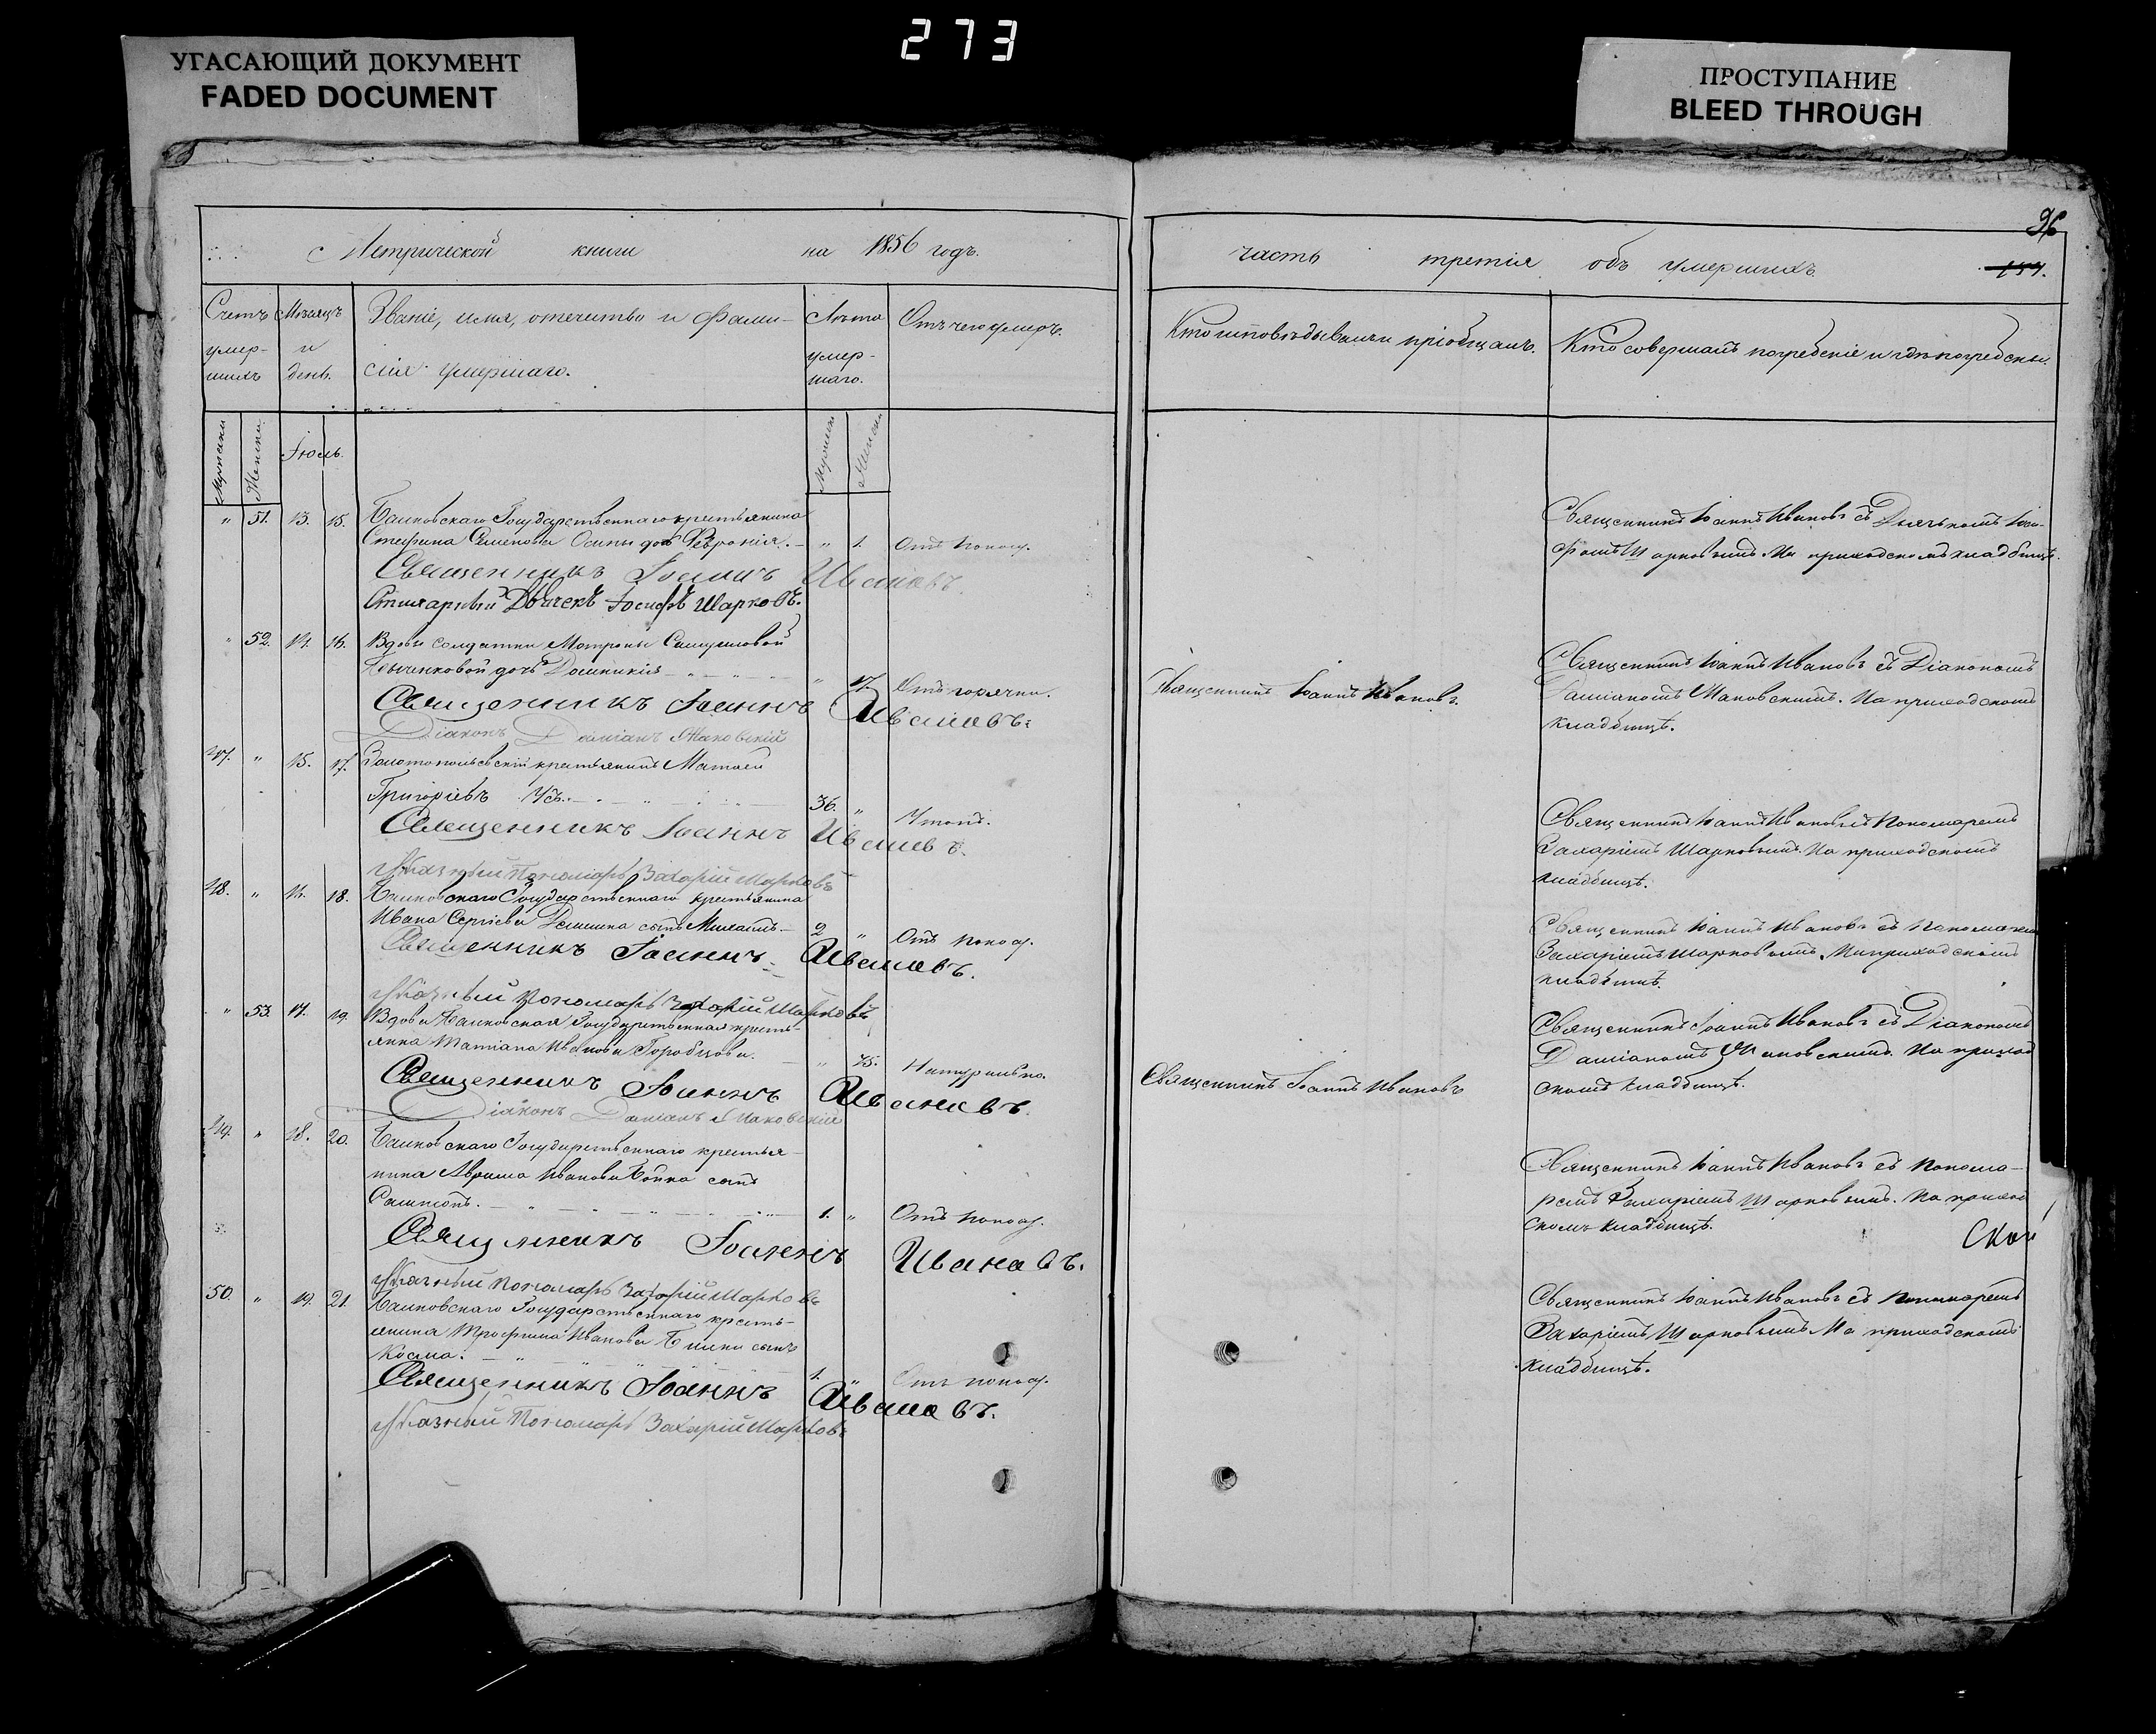 273
УГАСАЮЩИЙ ДОКУМЕНТ
FADED DOCUMENT
ПРОСТУПАНИЕ
BLEED THROUGH
96
Метрической книги на 1856 годъ.
часть третія объ умершихъ
Счетъ умер-шихъ
Мѣсяцъ и день.
Званіе, имя, отечество и фами-
лія умершаго.
Лѣта умер-шаго.
Отъ чего умеръ.
Кто исповѣдывалъ и пріобщалъ.
Кто совершалъ погребеніе и гдѣ погребены.
Мужески
Женски
Іюль.
Мужески
Женски
" 51. 13. 15. Государственнаго крестьянина
Стефана Семенова дочь Февронія. " 1. Отъ поноса.
Священникъ Іоаннъ Ивановъ.
Стихарный Дьячекъ Іосифъ Шарковъ.
Священникъ Іоаннъ Ивановъ съ Дьячкомъ Іоси-
фомъ Шарковымъ. На приходскомъ кладбищѣ.
" 52. 14. 16. Вдовы солдатки Матроны Самуиловой
дочь Домникія " 17. Отъ горячки.
Священникъ Іоаннъ Ивановъ.
Діаконъ Даміанъ Маковскій
Священникъ Іоаннъ Ивановъ.
Священникъ Іоаннъ Ивановъ съ Діакономъ
Даміаномъ Маковскимъ. На приходскомъ
кладбищѣ.
47. " 15. 17. крестьянинъ Матфей
Григорьевъ 36. " Утопъ.
Священникъ Іоаннъ Ивановъ.
Указный Пономарь Захарій Шарковъ
Священникъ Іоаннъ Ивановъ съ Пономаремъ
Захаріемъ Шарковымъ. На приходскомъ
кладбищѣ.
48. " 16. 18. Государственнаго крестьянина
Ивана Сергіева сынъ Михаилъ. 2 " Отъ поноса.
Священникъ Іоаннъ Ивановъ.
Указный Пономарь Захарій Шарковъ
Священникъ Іоаннъ Ивановъ съ Пономаремъ
Захаріемъ Шарковымъ. На приходскомъ
кладбищѣ.
" 53. 17. 19. Вдова Государственная кресть-
янка Татіана Иванова " 75. Натурально.
Священникъ Іоаннъ Ивановъ.
Діаконъ Даміанъ Маковскій
Священникъ Іоаннъ Ивановъ
Священникъ Іоаннъ Ивановъ съ Діакономъ
Даміаномъ Маковскимъ. На приход
скомъ кладбищѣ.
49. " 18. 20. Государственнаго крестья-
нина Аврама Иванова Бойка сынъ
Сампсонъ. 1. " Отъ поноса.
Священникъ Іоаннъ Ивановъ.
Указный Пономарь Захарій Шарковъ
Священникъ Іоаннъ Ивановъ съ Понома-
ремъ Захаріемъ Шарковымъ. На приход
скомъ кладбищѣ.
50. " 19. 21. Государственнаго кресть-
янина Трофима Иванова сынъ
Косма. 1. " Отъ поноса.
Священникъ Іоаннъ Ивановъ.
Указный Пономарь Захарій Шарковъ
Священникъ Іоаннъ Ивановъ съ Пономаремъ
Захаріемъ Шарковымъ. На приходскомъ
кладбищѣ.